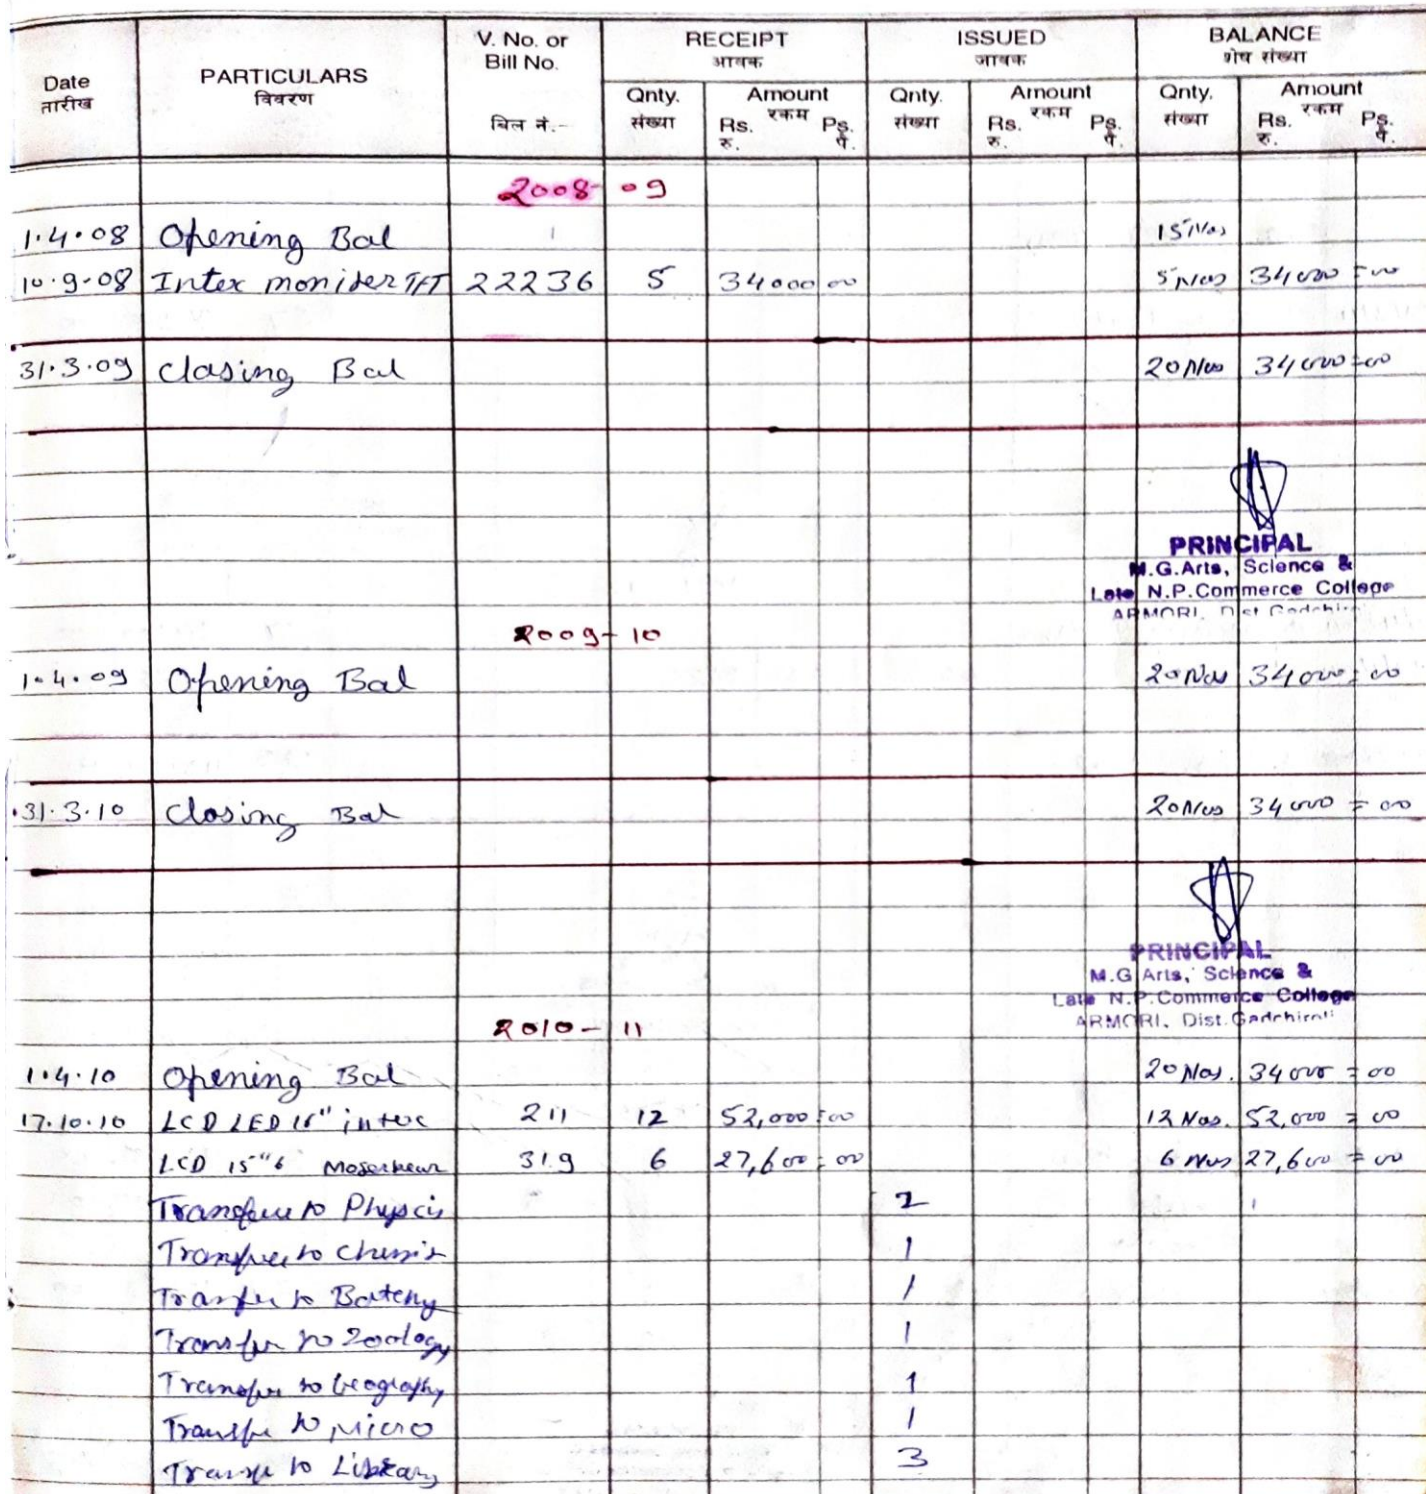 Date PARTICULARS V. No. or Bill No. RECEIPT ISSUED BALANCE
तारीख विवरण बिल नं.- आवक जावक शेष संख्या
Qnty. Amount Qnty. Amount Qnty. Amount
संख्या Rs. रकम Ps. संख्या Rs. रकम Ps. संख्या Rs. रकम Ps.
रु. पै. रु. पै. रु. पै.
2008-09
1.4.08 Opening Bal 15 Nos
10.9.08 Intex moniter TFT 22236 5 34000 00 5 Nos 34000=00
31.3.09 Closing Bal 20 Nos 34000=00
PRINCIPAL
M.G.Arts, Science &
Late N.P.Commerce College
ARMORI, Dist Gadchiroli
2009-10
1.4.09 Opening Bal 20 Nos 34000=00
31.3.10 Closing Bal 20 Nos 34000=00
PRINCIPAL
M.G.Arts, Science &
Late N.P.Commerce College
ARMORI, Dist.Gadchiroli
2010-11
1.4.10 Opening Bal 20 Nos. 34000=00
17.10.10 LCD LED intex 211 12 52,000=00 12 Nos. 52,000=00
LCD 15"6 319 6 27,600=00 6 Nos 27,600=00
Transfer to Physcis 2
Transfer to 1
Tranfer to Boteny 1
Transfer to Zoology 1
Transfer to Geography 1
Transfe to Micro 1
to Library 3